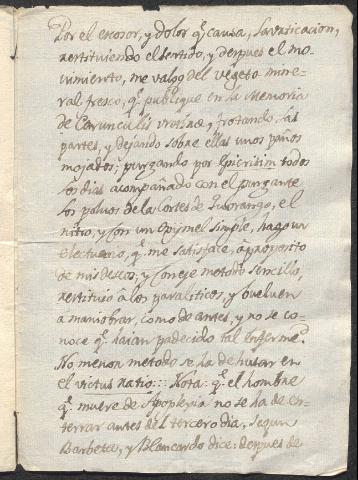 Por el escosor, y dolor qͤ causa, la urticacion,
restituiendo el sentido, y despues el mo-
vimiento, me valgo del vegeto mine-
ral fresco, qͤ publique en la Memoria
de Carunculis vretræ, frotando las
partes, y dejando sobre ellas unos paños
mojados; purgando por Epicrisim todos
los dias acompañado con el purgante
los polvos de la Cortesa de Durango, el
nitro, y con un Oximel simple, hago un
electuario, qͤ me satisface, à proposito
de mis deseos; y con este metodo sencillo,
restituio à los paraliticos, y buelven
a maniobrar, como de antes, y no se co-
noce qͤ haian padecido tal enfermeᵈ.
No menon metodo se ha de husar en
el victus ratio::: Nota: qͤ el hombre
qͤ muere de Apoplexia no se ha de en-
terrar antes del tercero dia, segun
Barbeta, y Blancardo dice: despues de